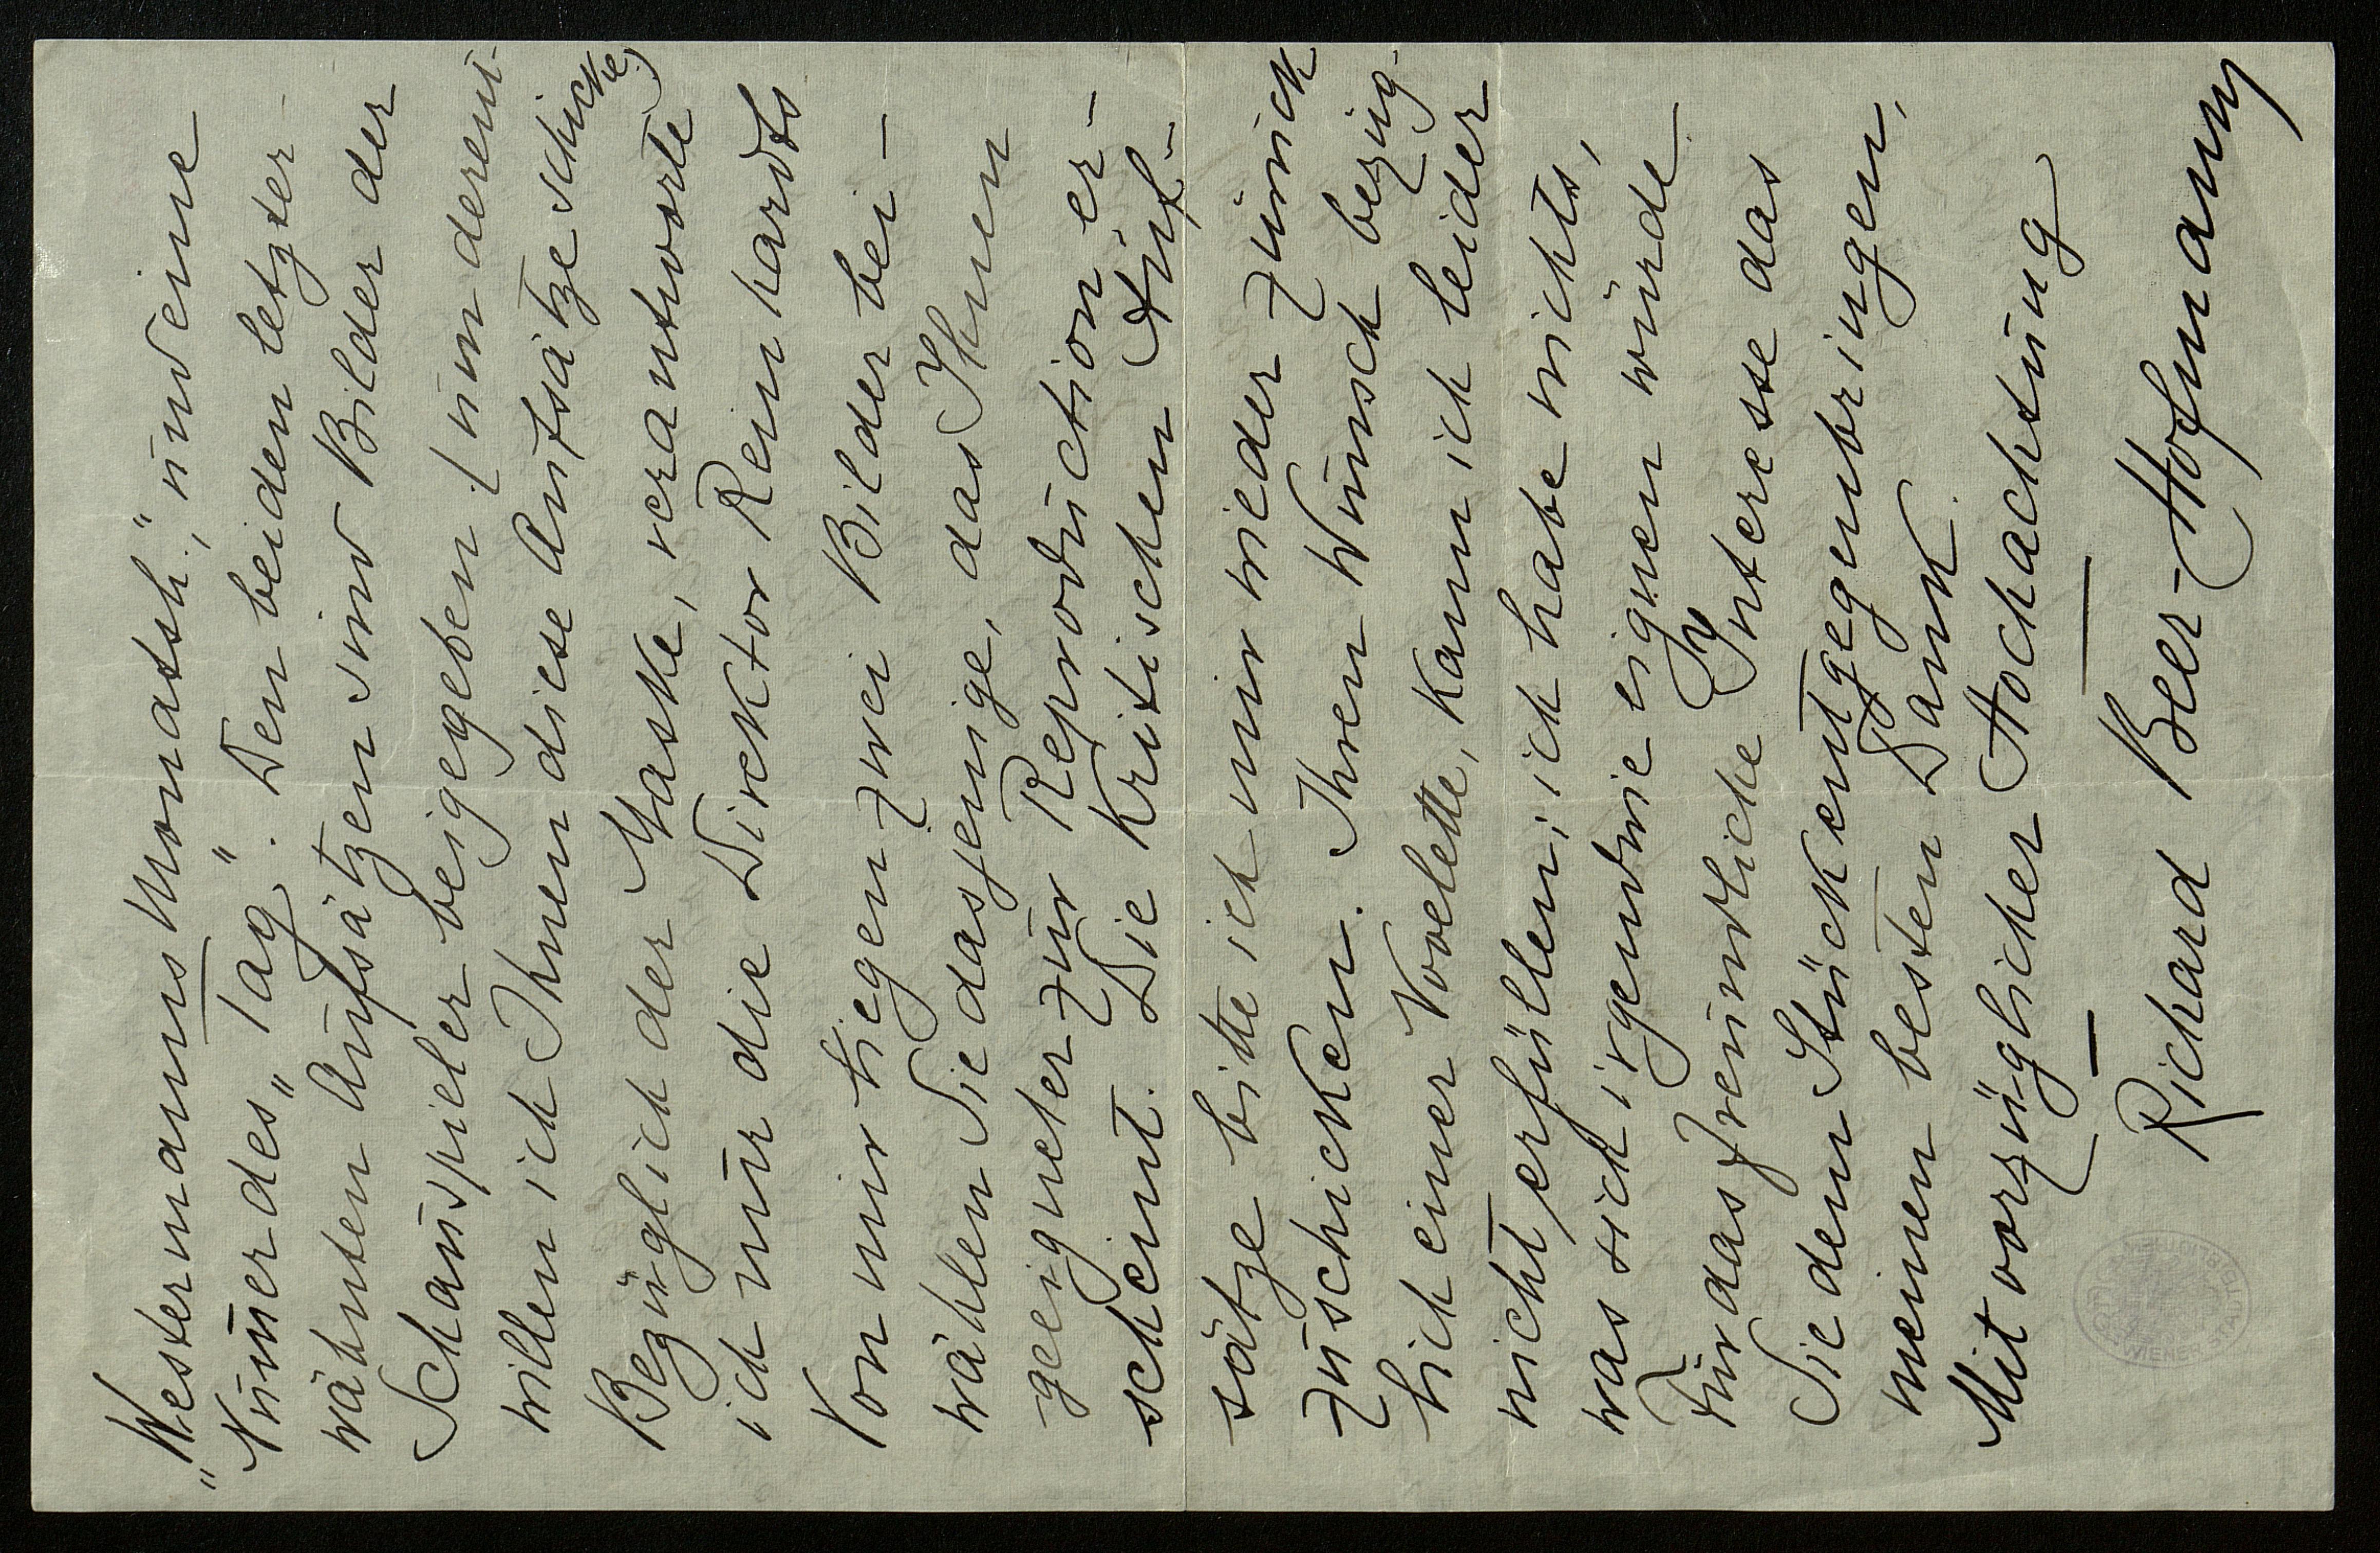 „Westermanns Monatsh.", und eine
Num̄er des „Tag". Den beiden letzter-
wähnten Aufsätzen sind Bilder der
Schauspieler beigegeben (um derent-
willen ich Ihnen diese Aufsätze schicke)
Bezüglich der Maske, verantworte
ich nur die Direktor Reinhardts
Von mir liegen zwei Bilder bei –
wählen Sie dasjenige, das Ihnen
geeigneter zur Reproduction er-
scheint. Die kritischen Auf-
sätze bitte ich mir wieder zurück
zuschicken. Ihren Wunsch bezüg-
lich einer Novelette, kann ich leider
nicht erfüllen; ich habe nichts,
was sich irgendwie eignen würde.
Für das freundliche Interesse das
Sie dem Stück entgegenbringen,
meinen besten Dank.
Mit vorzüglicher Hochachtung
Richard Beer-Hofmann
WIENER STADTBIBLIOTHEK